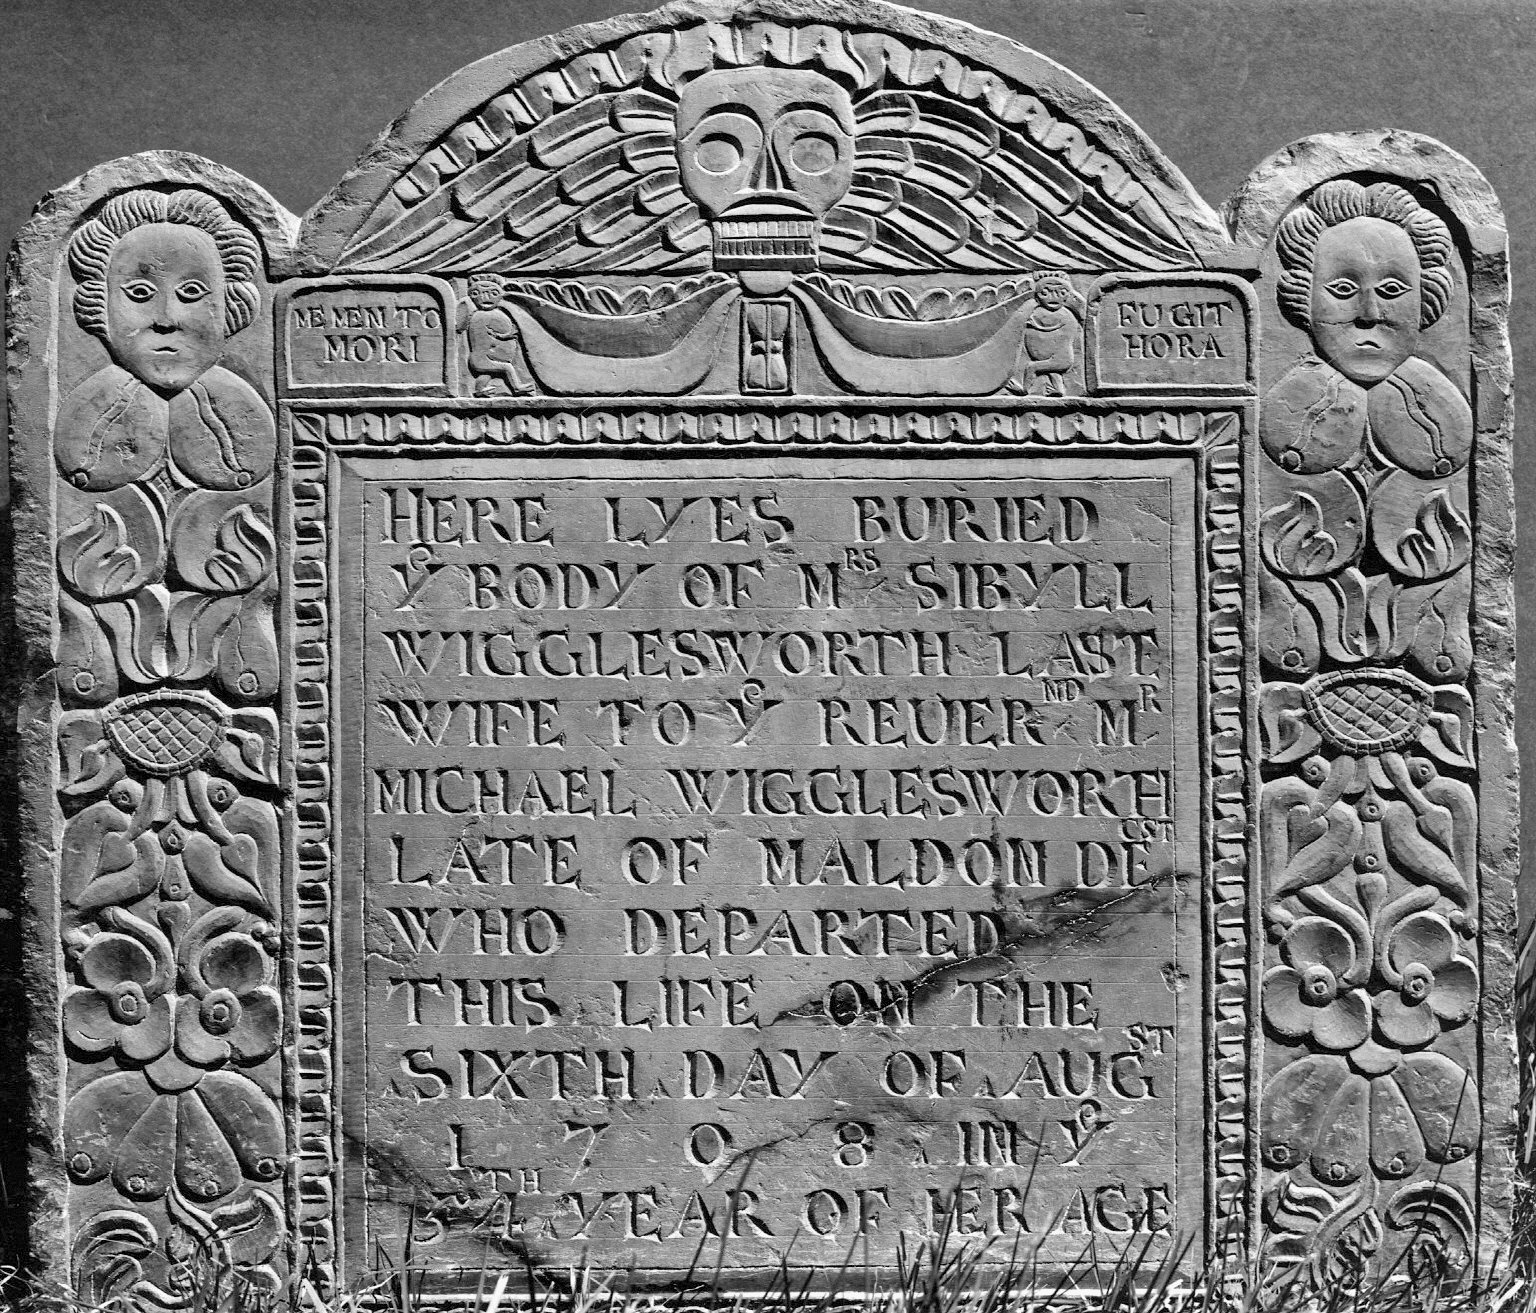 MEMENTO
MORI
FUGIT
HORA
HERE LYES BURIED
Yᵉ BODY OF Mᴿˢ SIBYLL
WIGGLESWORTH LAST
WIFE TO Yᵉ REUERᴺᴰ Mᴿ
MICHAEL WIGGLESWORTH
LATE OF MALDON DEᶜˢᵀ
WHO DEPARTED
THIS LIFE ON THE
SIXTH DAY OF AUGˢᵀ
1 7 0 8 IN Yᵉ
54ᵀᴴ YEAR OF HER AGE